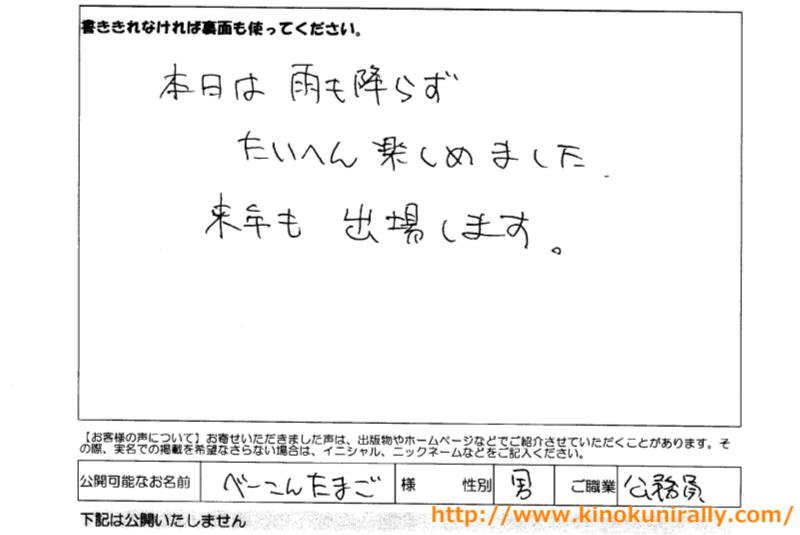 書ききれなければ裏面も使ってください。
本日は 雨も降らず
たいへん 楽しめました.
来年も 出場します。
【お客様の声について】お寄せいただきました声は、出版物やホームページなどでご紹介させていただくことがあります。そ
の際、実名での掲載を希望なさらない場合は、イニシャル、ニックネームなどをご記入ください。
公開可能なお名前 べーこんたまご 様 性別 男 ご職業 公務員
下記は公開いたしません
http://www.kinokunirally.com/